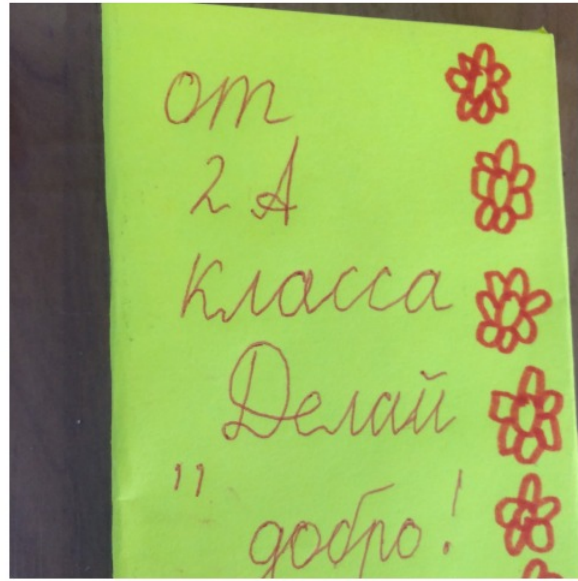 от
2 А
класса
Делай
" добро!